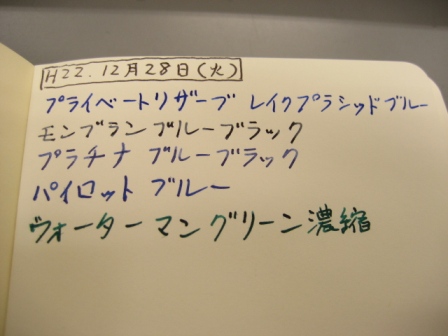 H22.12月28日(火)
プライベートリザーブ レイクプラシッドブルー
モンブラン ブルーブラック
プラチナ ブルーブラック
パイロット ブルー
ウォーターマン グリーン濃縮